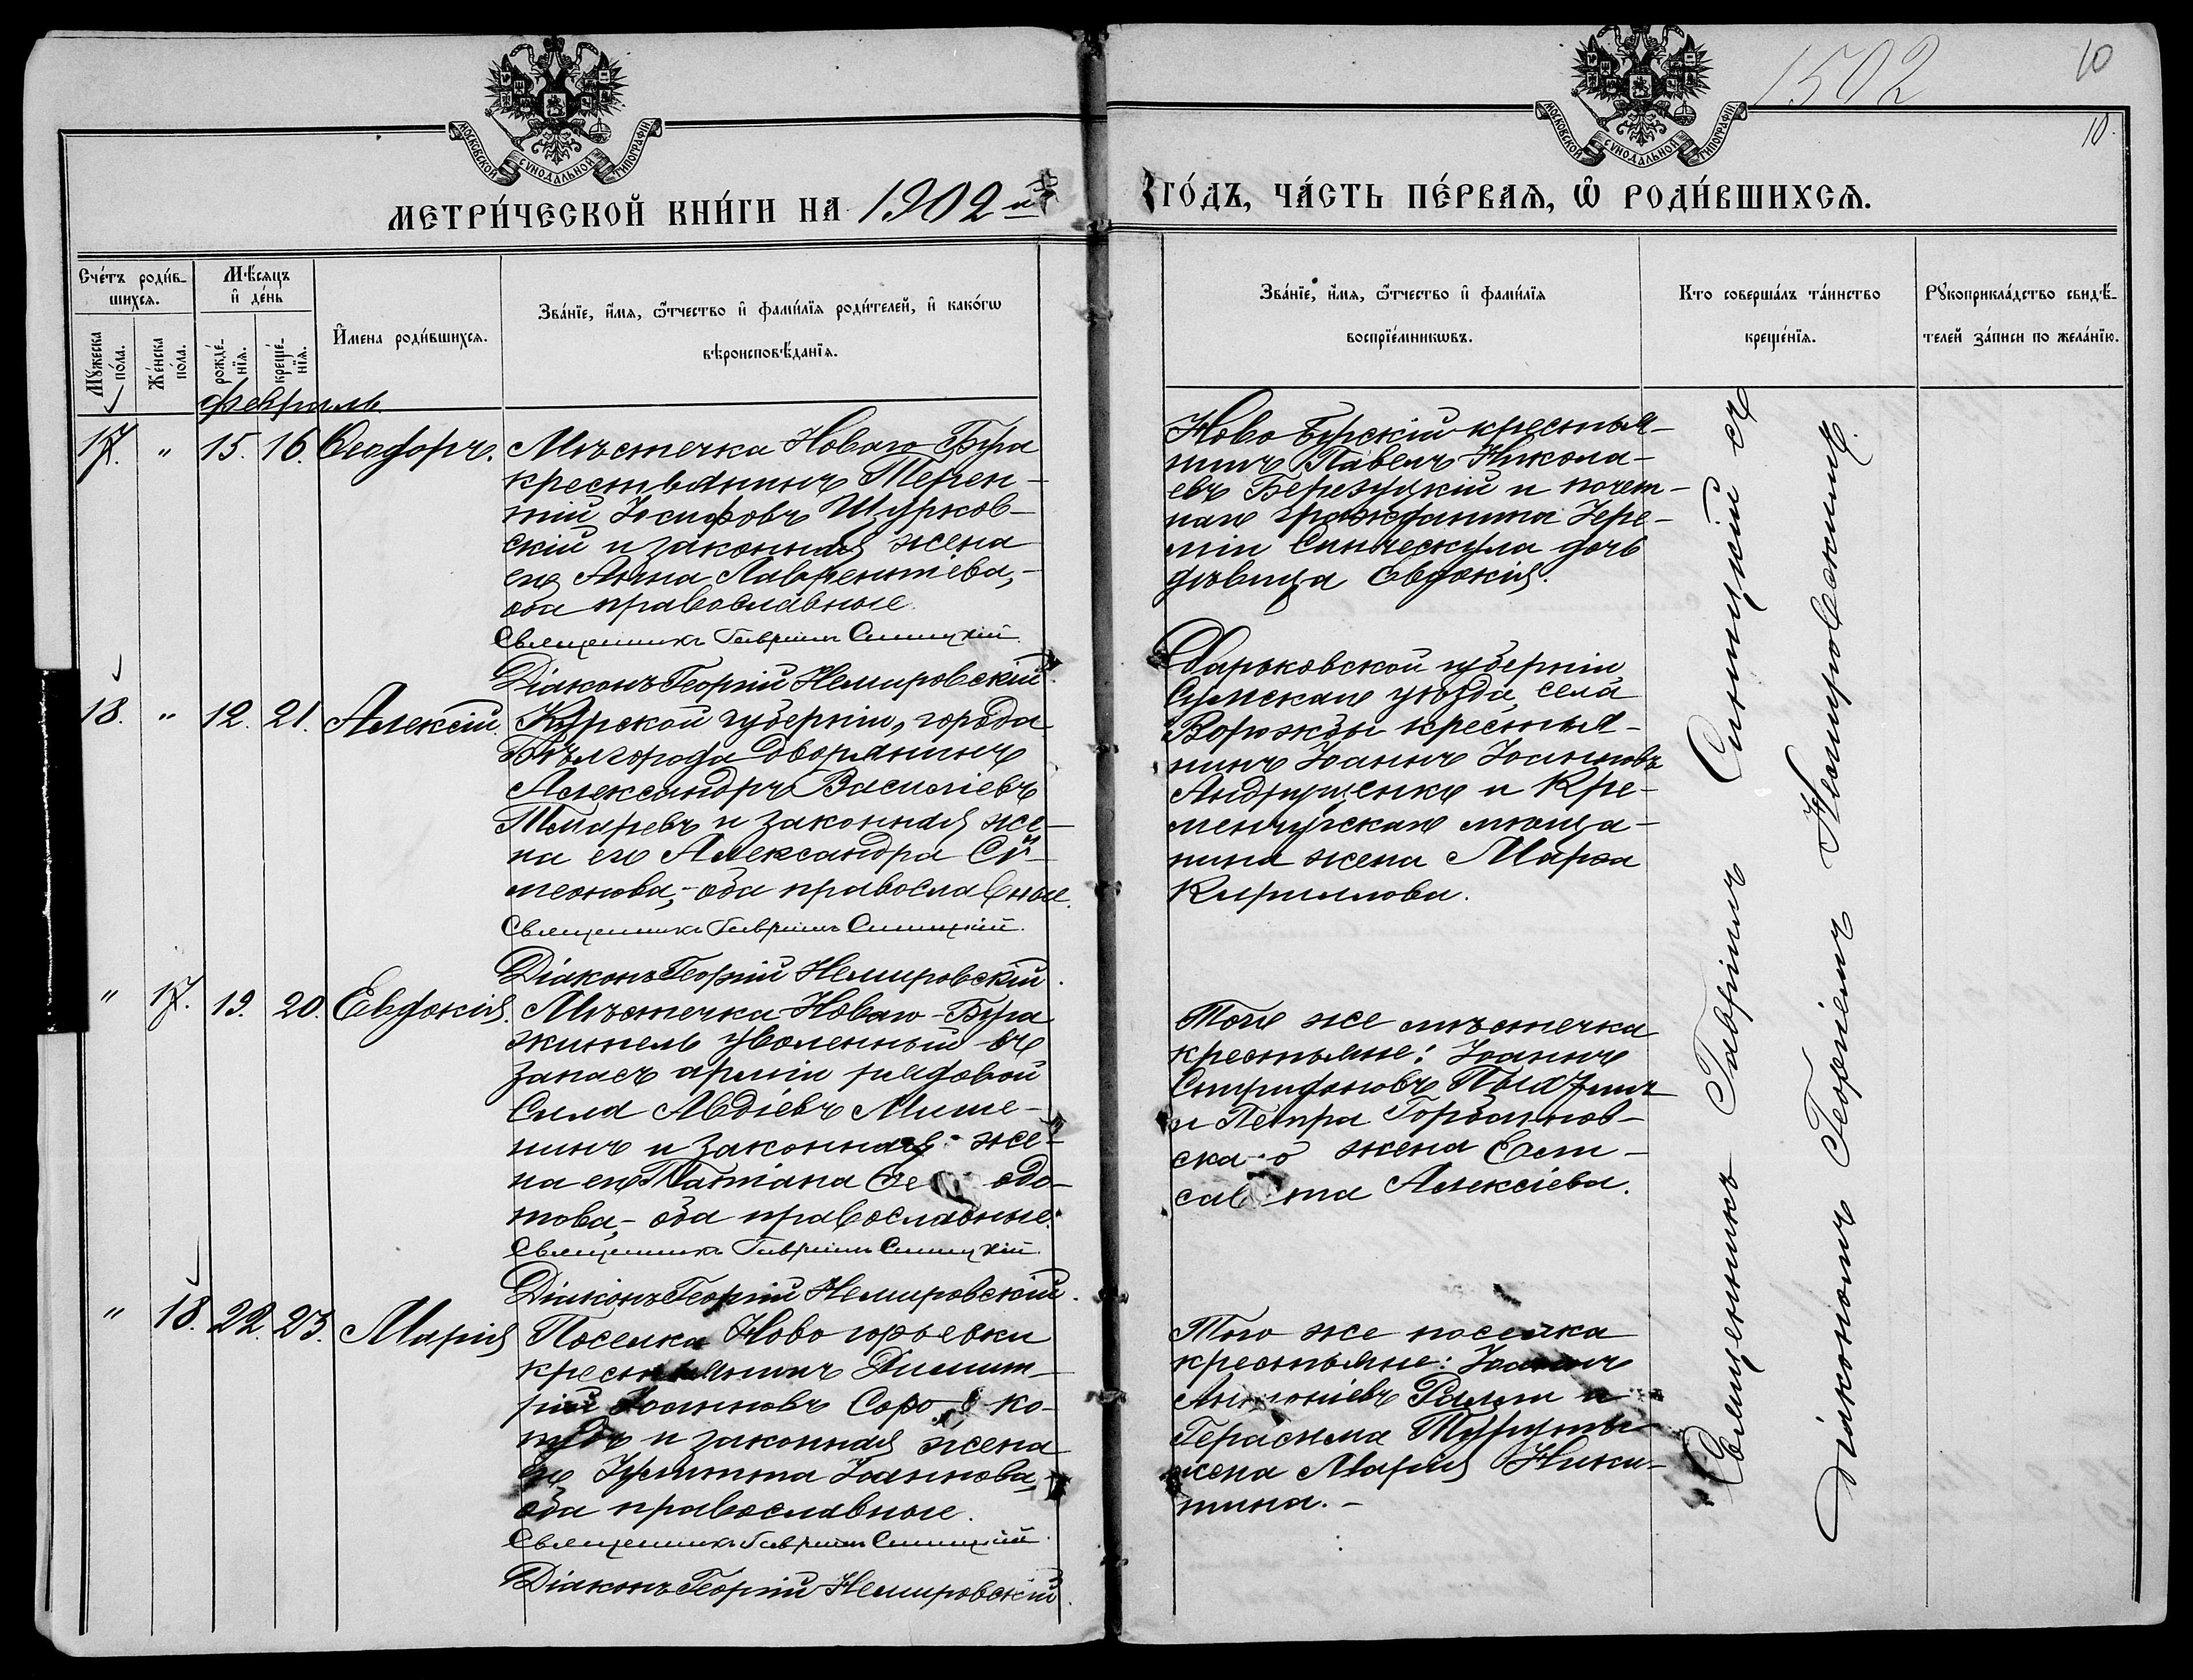 1502
10
10.
МОСКОВСКОЙ СѴНОДАЛЬНОЙ ТИПОГРАФІИ
МОСКОВСКОЙ СѴНОДАЛЬНОЙ ТИПОГРАФІИ
МЕТРИ́ЧЕСКОЙ КНИ́ГИ НА 1902 й
ГО́ДЪ, ЧА́СТЬ ПЕ́РВАѦ, Ѡ҆ РОДИ́ВШИХСѦ.
Сче́тъ роди́в-
шихсѧ.
Мꙋ́жеска по́ла.
Же́нска по́ла.
Мѣ́сѧцъ
и҆ де́нь
рожде́-нїѧ.
креще́-нїѧ.
И҆мена роди́вшихсѧ.
Зва́нїе, и҆́мѧ, ѻ҆́тчество и҆ фами́лїѧ роди́телей, и҆ како́гѡ
вѣроисповѣ́данїѧ.
Зва́нїе, и҆́мѧ, ѻ҆́тчество и҆ фами́лїѧ
воспрїе́мникѡвъ.
Кто соверша́лъ та́инство
креще́нїѧ.
Рꙋкоприкла́дство свидѣ́-
телей за́писи по жела́нїю.
февраль
17. " 15. 16. Ѳеодоръ.
Мѣстечка Новаго-Буга
крестьянинъ Терен-
тій Іосифовъ Шурков-
скій и законная жена
его Анна Лаврентіева,-
оба православные.
Священникъ Гавріилъ Синицкій.
Діаконъ Георгій Немировскій.
Ново-Бугскій крестья-
нинъ Павелъ Никола-
евъ Березуцкій и почет-
наго гражданина Іере-
міи дочь
дѣвица Евдокія.
18. " 12. 21. Алексій.
Курской губерніи, города
Бѣлгорода дворянинъ
Александръ Василіевъ
и законная же-
на его Александра Си-
меонова,- оба православные.
Священникъ Гавріилъ Синицкій.
Діаконъ Георгій Немировскій.
Харьковской губерніи
Сумскаго уѣзда, села
Ворожбы крестья-
нинъ Іоаннъ Іоанновъ
Андрущенко и Кре-
менчугскаго мѣща-
нина жена Марѳа
Кириллова.
" 17. 19. 20. Евдокія.
Мѣстечка Новаго-Буга
житель уволенный въ
запасъ арміи рядовой
Сила Авдіевъ Мише-
нинъ и законная же-
на его Татіана Ѳе одо-
това,- оба православные.
Священникъ Гавріилъ Синицкій.
Діаконъ Георгій Немировскій.
Того же мѣстечка
крестьяне: Іоаннъ
Спиридоновъ
и Петра Горбанов-
ска о жена Ели-
сав та Алексіева.
" 18. 22. 23. Марія
Поселка Ново горьевки
крестьянинъ Димит-
рій Іоанновъ Соро ко-
и законная жена
его Іоаннова,-
оба православные.
Священникъ Гавріилъ Синицкій.
Діаконъ Георгій Немировскій.
Того же поселка
крестьяне: Іоаннъ
Антоніевъ и
Герасима
жена Марія Ники-
тина.-
Священникъ Гавріилъ Синицкій съ
діакономъ Георгіемъ Немировскимъ.